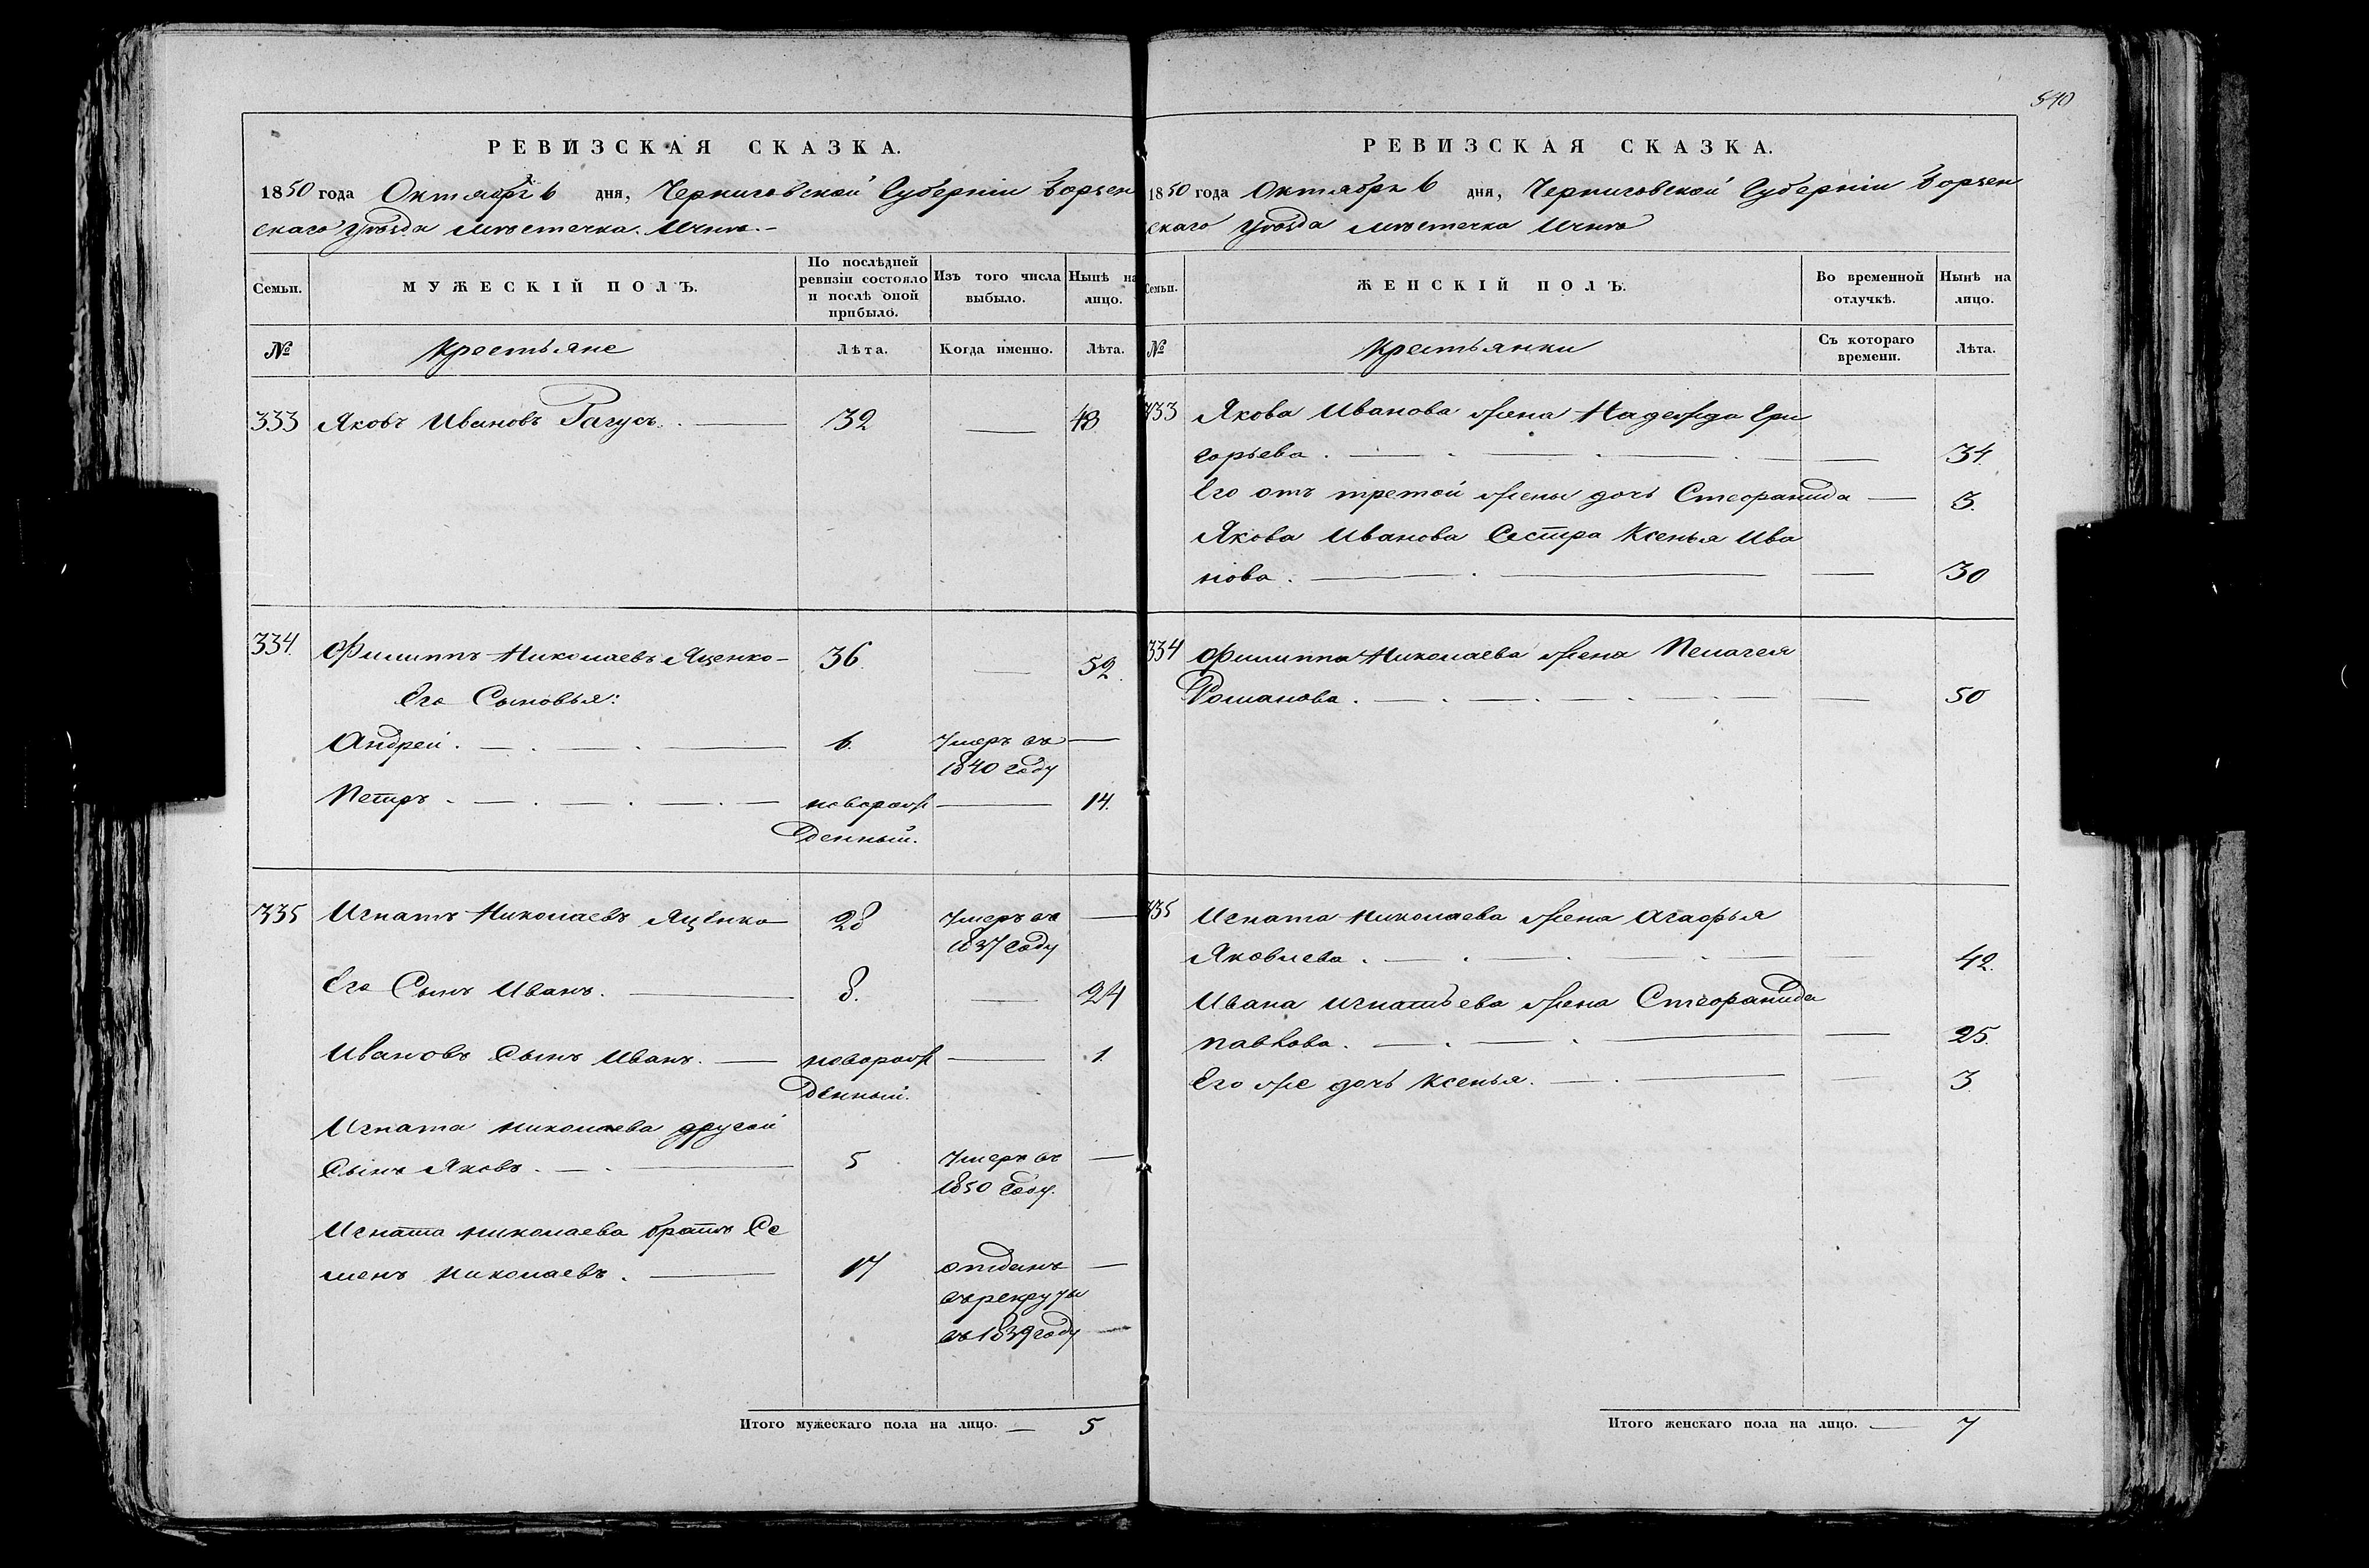 540
РЕВИЗСКАЯ СКАЗКА.
1850 года Октября 6 дня, Черниговской Губерніи Борзен
скаго Уѣзда мѣстечка Ичнѣ.
Семьи.
МУЖЕСКІЙ ПОЛЪ.
По послѣдней ревизіи состояло и послѣ оной прибыло.
Изъ того числа выбыло.
Нынѣ на лицо.
№
Крестьяне
Лѣта.
Когда именно.
Лѣта.
333 Яковъ Ивановъ Рагусъ. 32 — 48
334. Филиппъ Николаевъ Яценко 36. — 52.
Его Сыновья:
Андрей. 6. Умеръ въ —
1840 году
Петръ новорож — 14.
денный.
335 Игнатъ Николаевъ Яценко 28 Умеръ въ —
1837 году
Его Сынъ Иванъ. 8. — 24
Ивановъ Сынъ Иванъ. новорож — 1.
денный.
Игната Николаева другой
Сынъ Яковъ. 5 Умеръ въ —
1850 году.
Игната Николаева братъ Се
менъ Николаевъ. 17 отданъ —
въ рекруты
въ 1839 году —
Итого мужескаго пола на лицо. — 5
РЕВИЗСКАЯ СКАЗКА.
1850 года Октября 6 дня, Черниговской Губерніи Борзен
скаго Уѣзда мѣстечка Ичнѣ
Семьи.
ЖЕНСКІЙ ПОЛЪ.
Во временной отлучкѣ.
Нынѣ на лицо.
№
Крестьянки
Съ котораго времени.
Лѣта.
333 Якова Иванова жена Надежда Гри
горьева. — 34.
Его отъ третой жены дочь Стефанида — 3.
Якова Иванова Сестра Ксенья Ива
нова. — 30
334 Филиппа Николаева жена Пелагея
Романова. — 50
335 Игната Николаева жена Агафья
Яковлева. — 42.
Ивана Игнатьева жена Стефанида
Павлова. — 25.
Его же дочь Ксенья. — 3
Итого женскаго пола на лицо. — 7